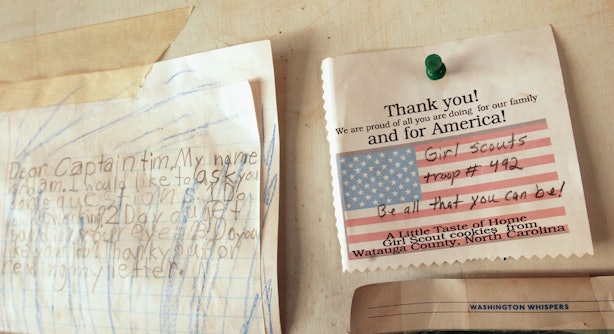 Dear Captain tim, My name
is Adam. I would like to ask you
some questions. 1 Day
2 Day
your eye
for
reading my letter.
Thank you!
We are proud of all you are doing for our family
and for America!
Girl scouts
troop # 492
Be all that you can be!
A Little Taste of Home
Girl Scout cookies from
Watauga County, North Carolina
WASHINGTON WHISPERS